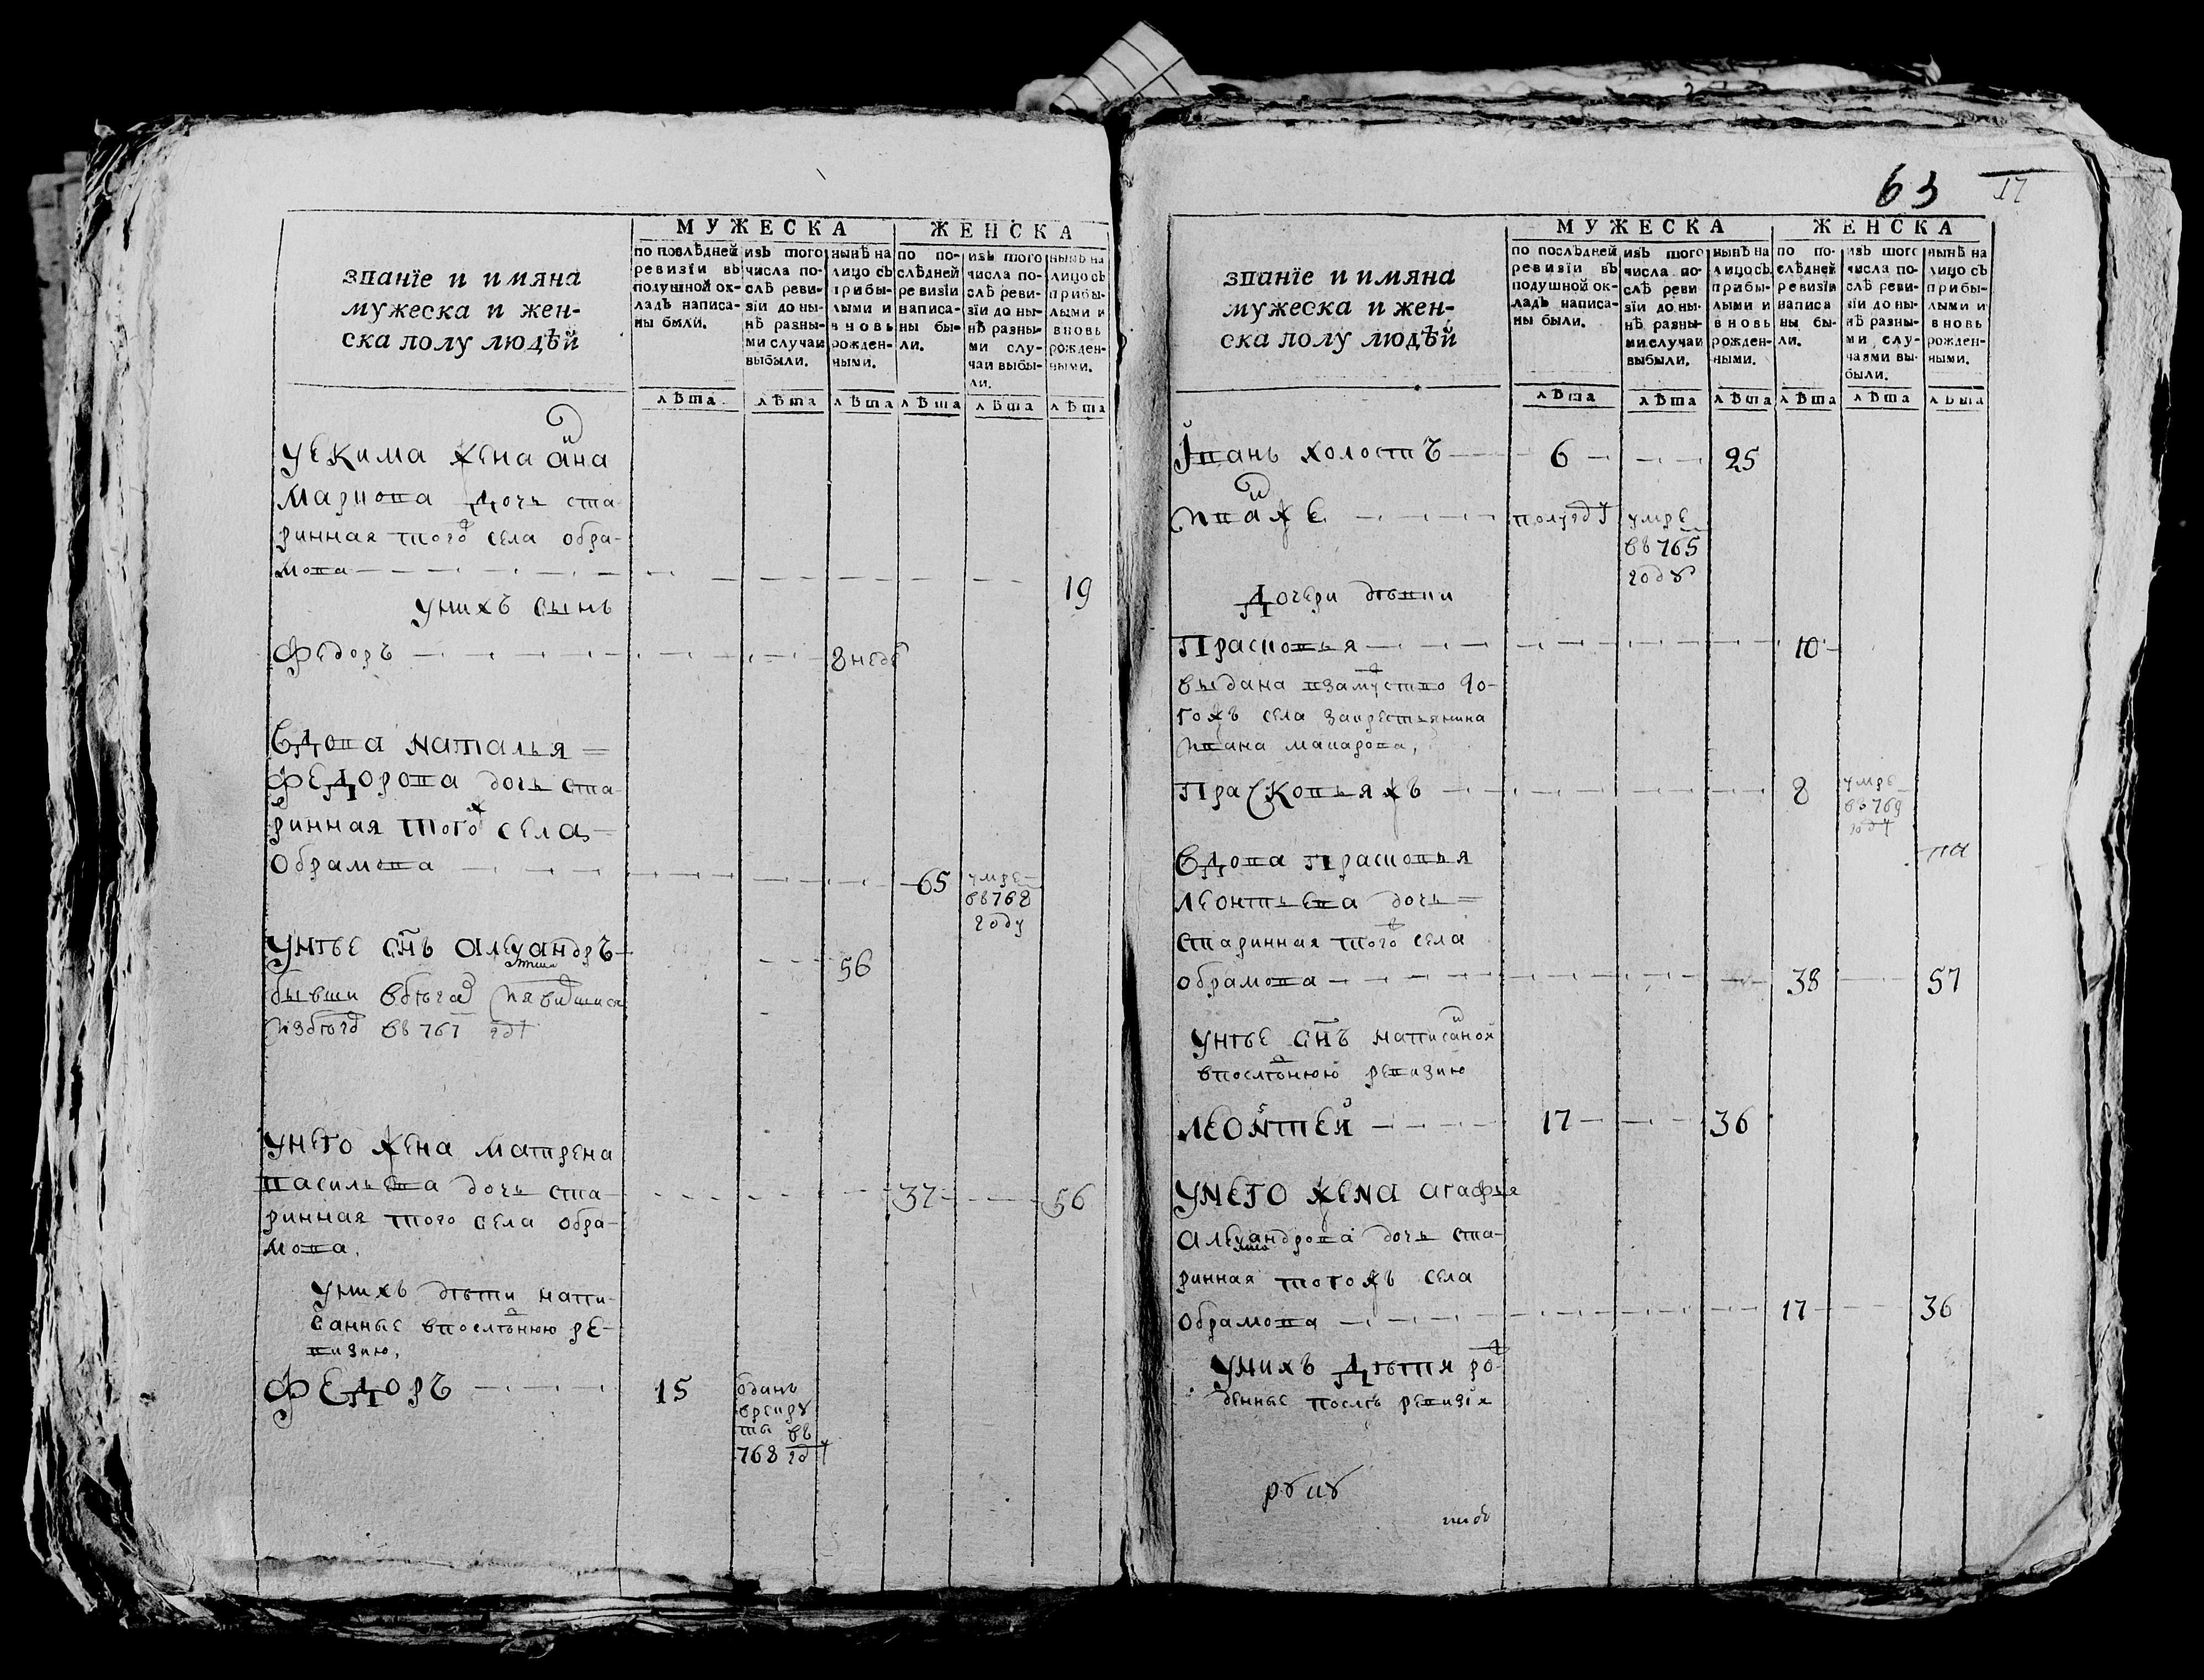 МУЖЕСКА ЖЕНСКА
званїе и имяна
мужеска и жен-
ска полу людѣй
по послѣдней
ревизїи въ
подушной ок-
ладъ написа-
ны были.
изъ того
числа по-
слѣ реви-
зїи до ны-
нѣ разны-
ми случаи
выбыли.
нынѣ на
лицо съ
прибы-
лыми и
вновь
рожден-
ными.
по по-
слѣдней
ревизїи
написа-
ны бы-
ли.
изъ того
числа по-
слѣ реви-
зїи до ны-
нѣ разны-
ми слу-
чаи выбы-
ли.
нынѣ на
лицо съ
прибы-
лыми и
вновь
рожден-
ными.
лѣта лѣта лѣта лѣта лѣта лѣта
Уекима жена ана
Маркова дочь ста
ринная того села обра-
мова 19
Унихъ сынъ
Федоръ 8 неде
Вдова Наталья
Федорова дочь ста
ринная того ж села
Обрамова 65 умре въ 768 году
Унѣе снъ Александръ 56
бывши вбѣга явившися
избѣгъ въ 767 году
Унего жена Матрена
васильева дочь ста- 37 56
ринная того села обра-
мова.
Унихъ дѣти напи-
санные впослѣднюю ре-
визию,
Федоръ 15 одань
врекру
ты въ
768 году
63 17
МУЖЕСКА ЖЕНСКА
званїе и имяна
мужеска и жен-
ска полу людѣй
по послѣдней
ревизїи въ
подушной ок-
ладъ написа-
ны были.
изъ того
числа по-
слѣ реви
зїи до ны-
нѣ разны-
ми случаи
выбыли.
нынѣ на
лицо съ
прибы-
лыми и
вновь
рожден-
ными.
по по-
слѣдней
ревизїи
написа
ны бы-
ли.
изъ того
числа по-
слѣ реви-
зїи до ны-
нѣ разны-
ми слу-
чаями вы-
были.
нынѣ на
лицо съ
прибы-
лыми и
вновь
рожден-
ными.
лѣта лѣта лѣта лѣта лѣта лѣта
Іванъ холостъ 6 25
Иванже полугоду умре
въ 765
году
Дочери дѣвки
Прасковья 10
выдана взамуство то-
гожъ села закрестьянина
Ивана макарова,
Прасковьяжъ 8 умре
въ 769
году
Вдова Прасковья
леонтьева дочь
старинная того села
обрамова 38 57
Унѣе снъ написаной
впослѣднюю ревизию
Леонтей 17 36
Унего жена агафья
Александрова дочь ста-
ринная тогожъ села
Обрамова 17 36
Унихъ Дѣти рож
денные послѣ ревизїи
руку